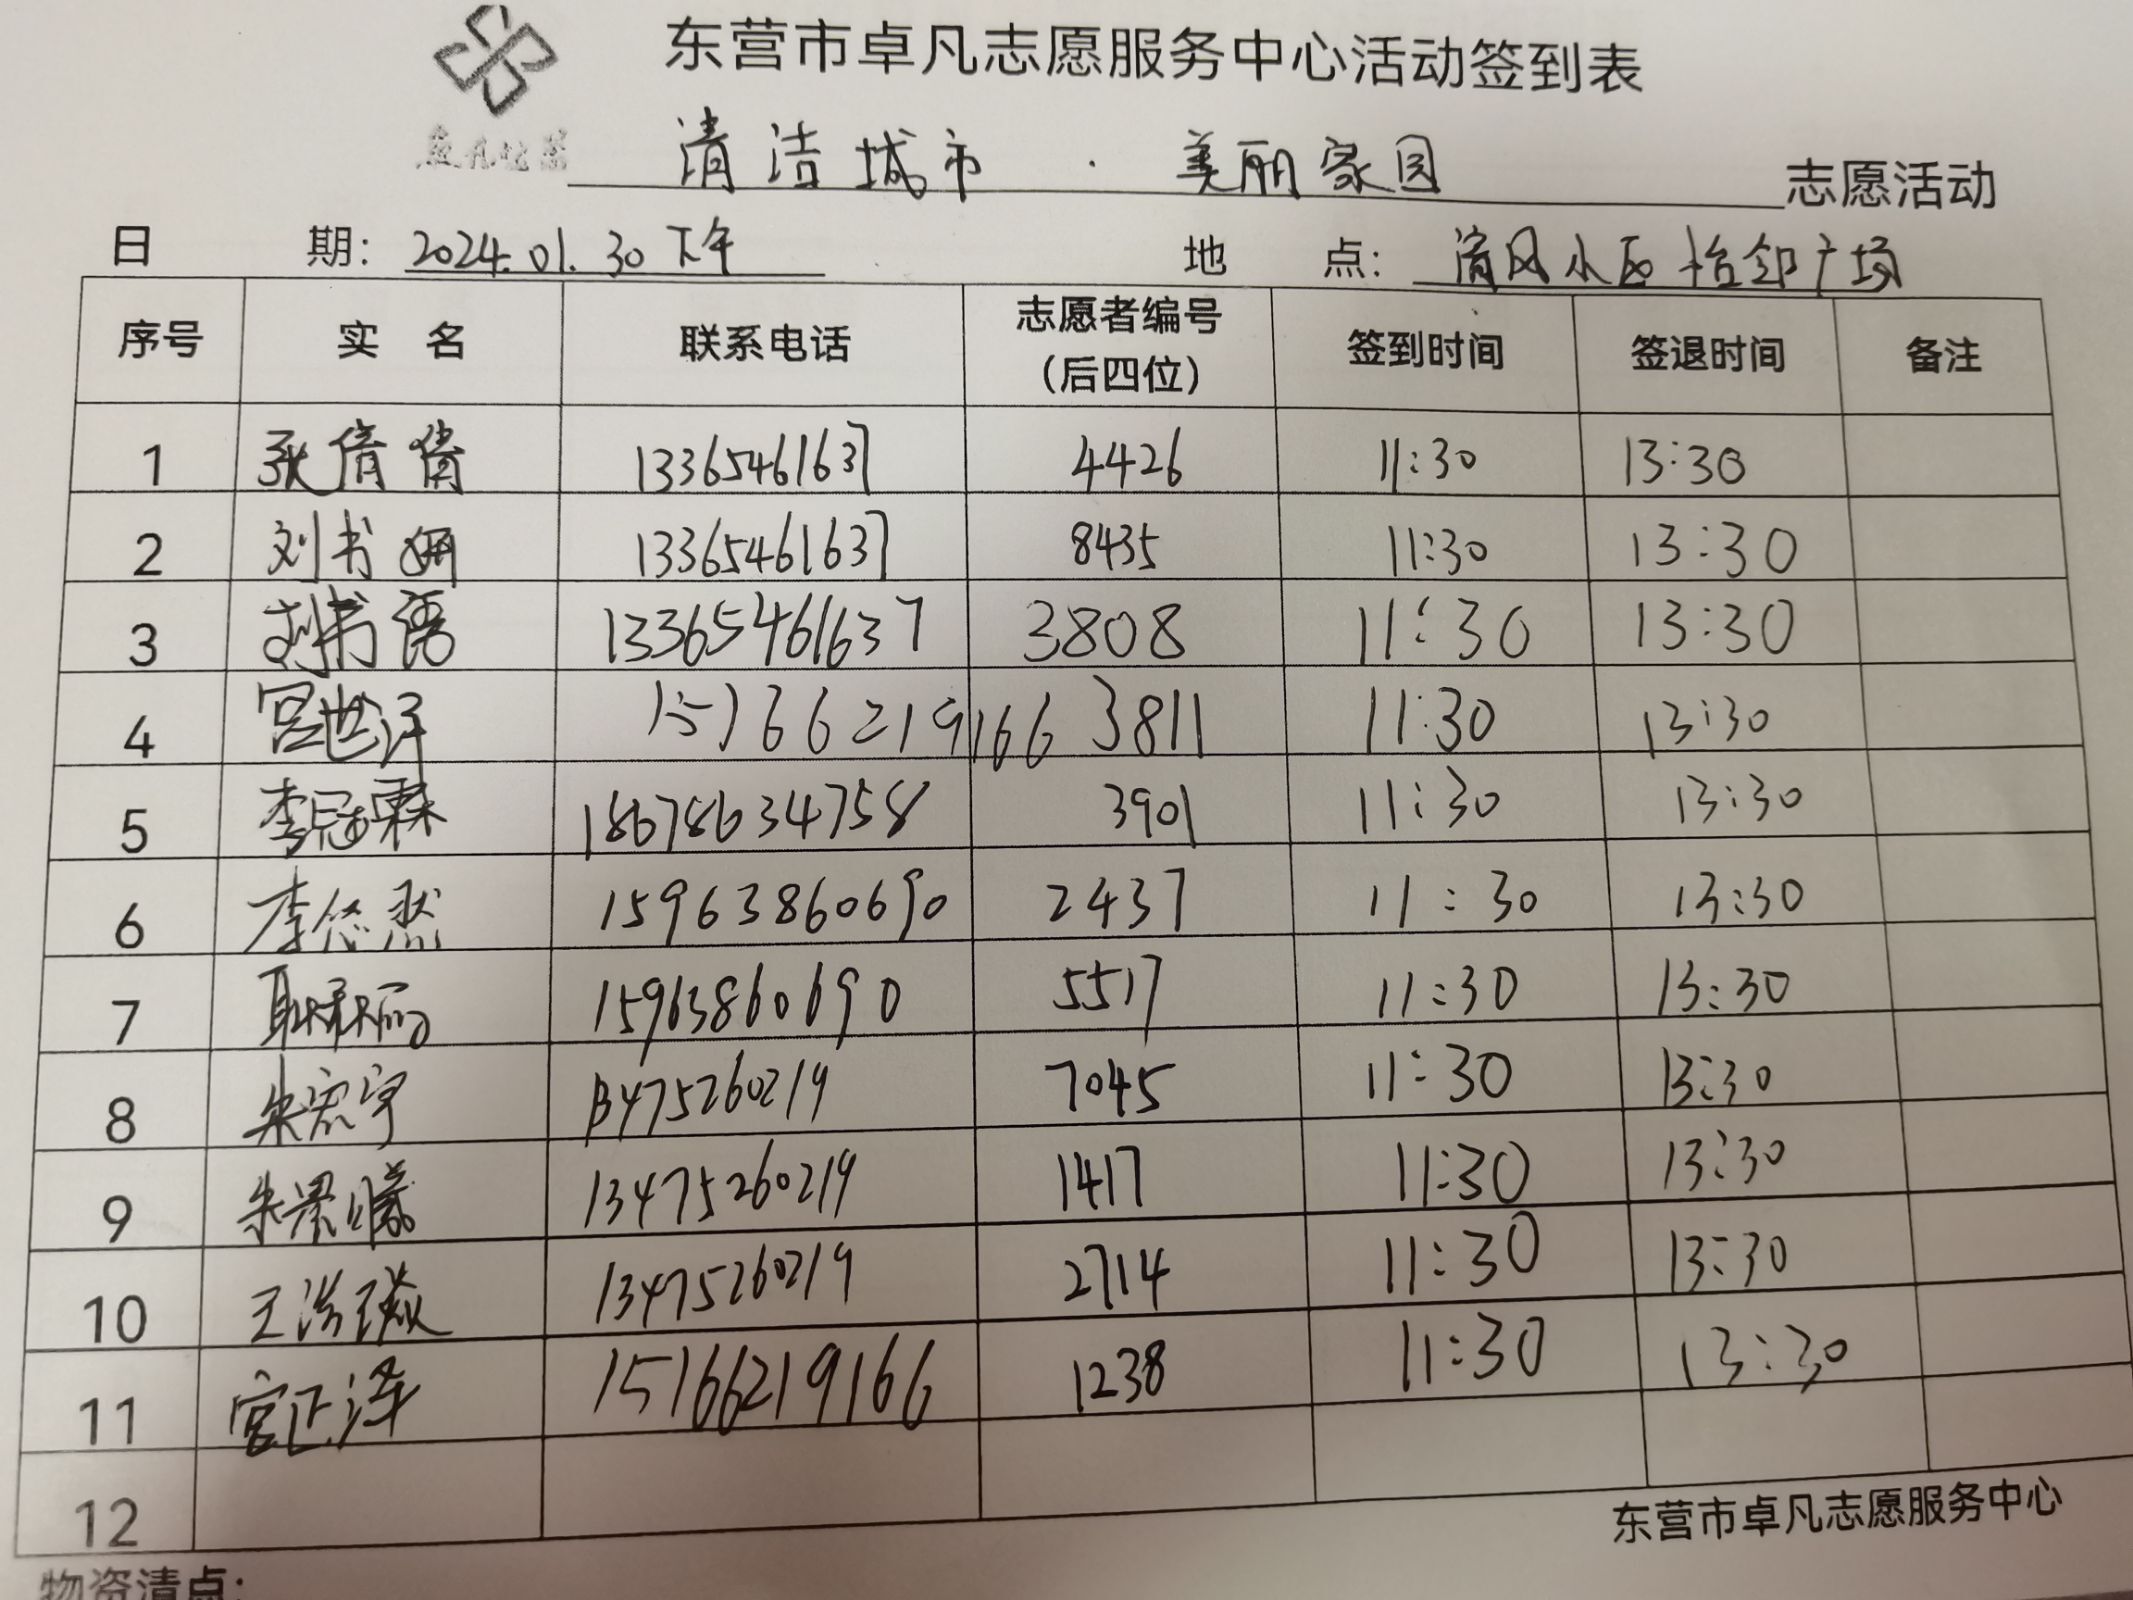 东营市卓凡志愿服务中心活动签到表
清洁城市 · 美丽家园 志愿活动
日 期: 2024.01.30 下午 地 点: 清风小区怡邻广场
序号 实 名 联系电话 志愿者编号(后四位) 签到时间 签退时间 备注
1 张倩倩 13365461637 4426 11:30 13:30
2 刘书妍 13365461637 8435 11:30 13:30
3 刘书语 13365461637 3808 11:30 13:30
4 宫世洋 15166219166 3811 11:30 13:30
5 李冠霖 18678634758 3901 11:30 13:30
6 李悠然 15963860690 2437 11:30 13:30
7 15963860690 5517 11:30 13:30
8 朱宏宇 13475260219 7045 11:30 13:30
9 朱梁曦 13475260219 1417 11:30 13:30
10 13475260219 2714 11:30 13:30
11 宫正泽 15166219166 1238 11:30 13:30
12
东营市卓凡志愿服务中心
物资清点: